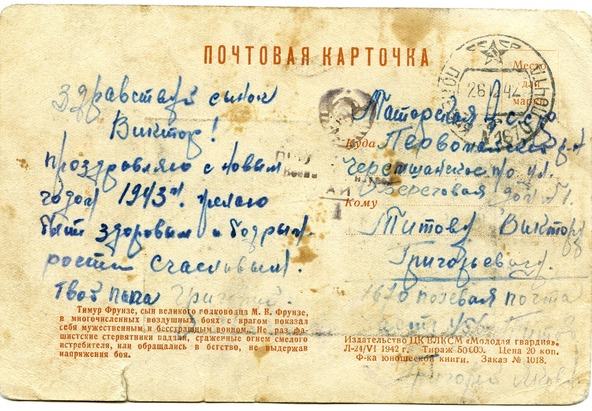 ПОЧТОВАЯ КАРТОЧКА
Здравствуй сынок
Виктор!
поздровляю с новым
годом 1943 г. желаю
быть здоровым и бодрым.
рости счасливым.
Твой папа Григорий.
Тимур Фрунзе, сын великого полководца М. В. Фрунзе,
в многочисленных воздушных боях с врагом показал
себя мужественным и бесстрашным воином. Не раз фа-
шистские стервятники падали, сраженные огнем смелого
истребителя, или обращались в бегство, не выдержав
напряжения боя.
Место
для
марки
26 12 42
Татарская
Куда Первомайский
Береговая дом
Кому
Титову Виктору
Григорьевичу.
1610 полевая почта
Издательство ЦК ВЛКСМ «Молодая гвардия».
Л-24/VI 1942 г. Тираж 50000. Цена 20 коп.
Ф-ка юношеской книги. Заказ № 1018.